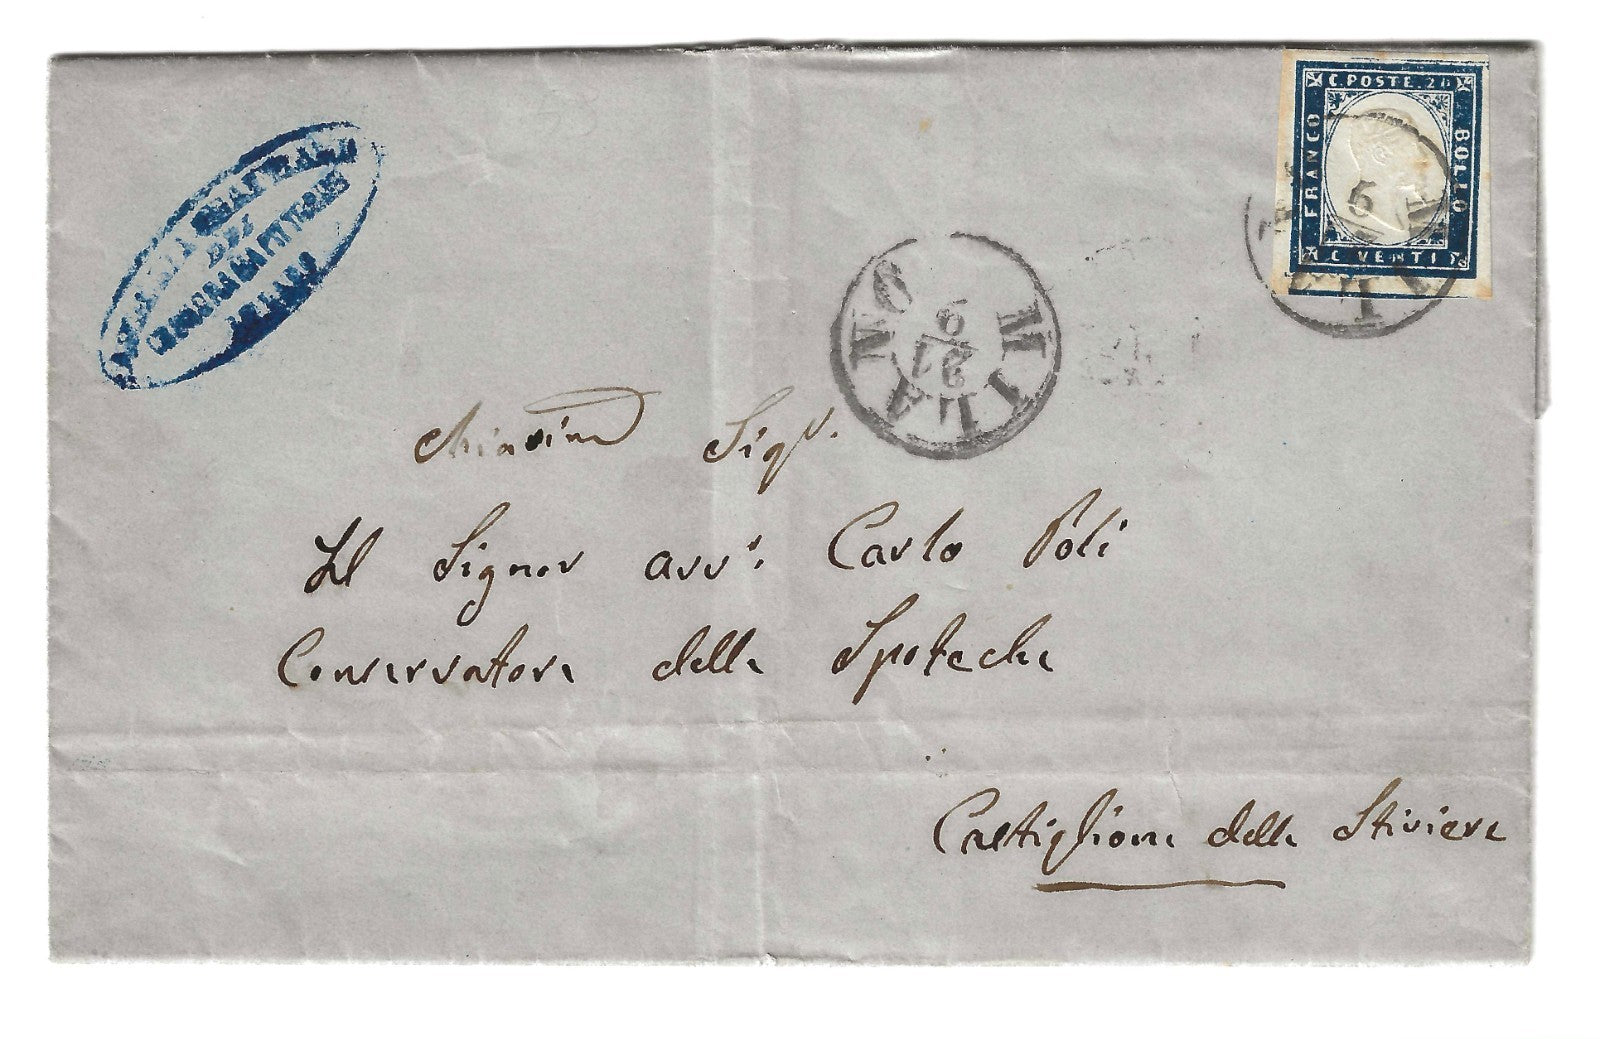 C. POSTE. 20
FRANCO
BOLLO
C. VENTI
MILANO
27
9
Chiarissmo Sigr.
Il Signor avvo. Carlo Poli
Conservatore delle Ipoteche
Castiglione delle Stiviere
MILANO